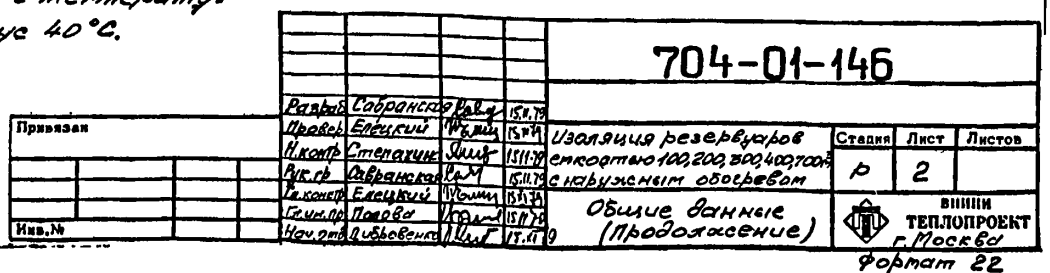 с температу-
ус 40°С.
704-01-146
Разраб Савранская 15.11.79
Провер Елецкий 15.11.79
Н.контр Степахин 15.11.79
Рук.гр Савранская 15.11.79
Гл.конст Елецкий 15.11.79
Гл.ин.пр Попова 15.11.79
Нач.отд Дубровенко 15.11.79
Привязан
Инв.№
Изоляция резервуаров
емкостью 100,200,300,400,700м³
с наружным обогревом
Стадия Лист Листов
Р 2
Общие данные
(Продолжение)
ВНИПИ
ТЕПЛОПРОЕКТ
г.Москва
Формат 22